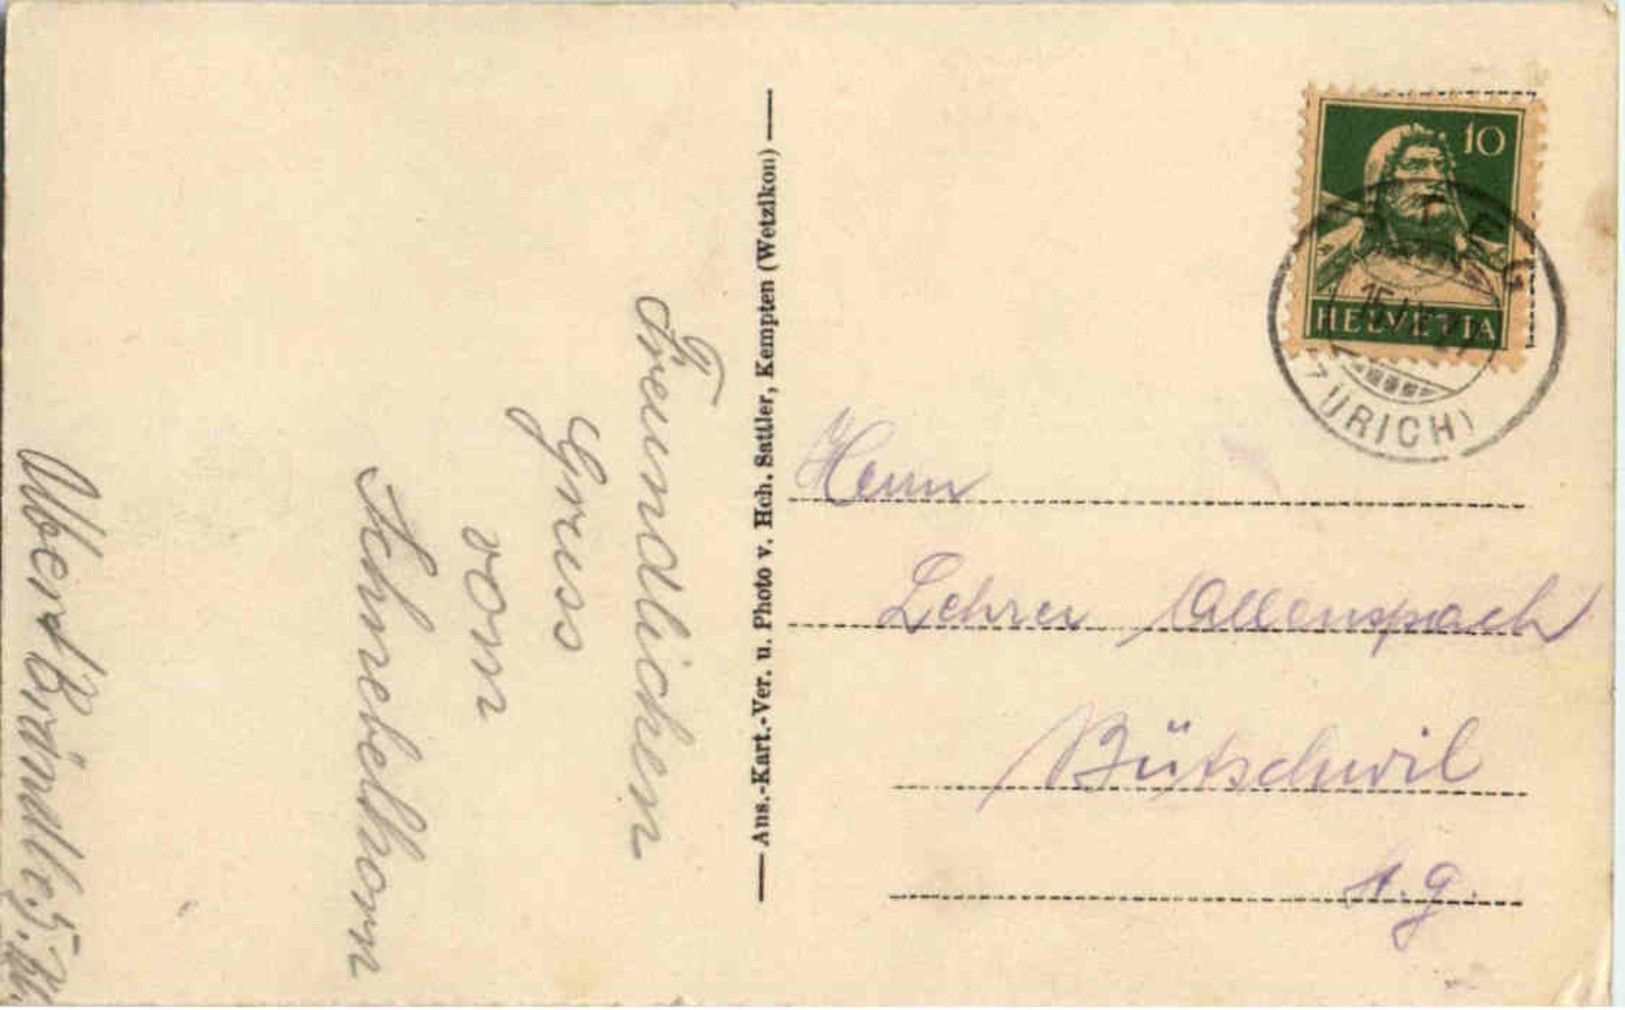 Freundlichen
Gruss
vom
Schnebelhorn
Albert Brändle, 5. Kl.
Ans.-Kart.-Ver. u. Photo v. Hch. Sattler, Kempten (Wetzikon)
10
HELVETIA
STEG
(ZÜRICH)
Herrn
Lehrer Allenspach
Bütschwil
St. G.